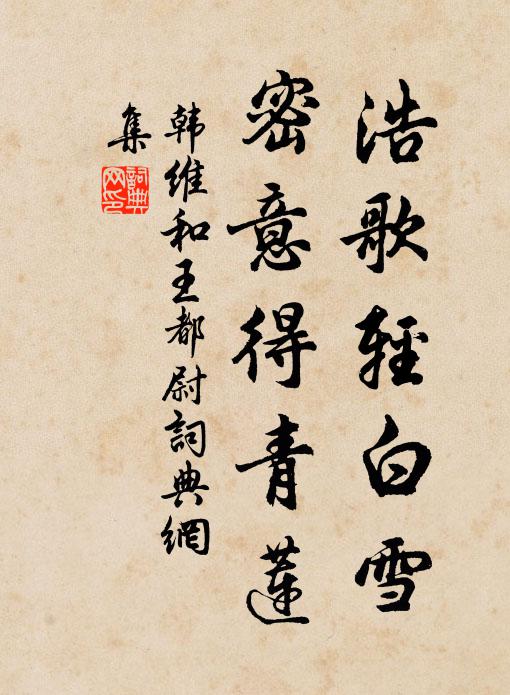 浩歌輕白雪
密意得青蓮
韩維和王都尉詞典網
集
詞典
网印